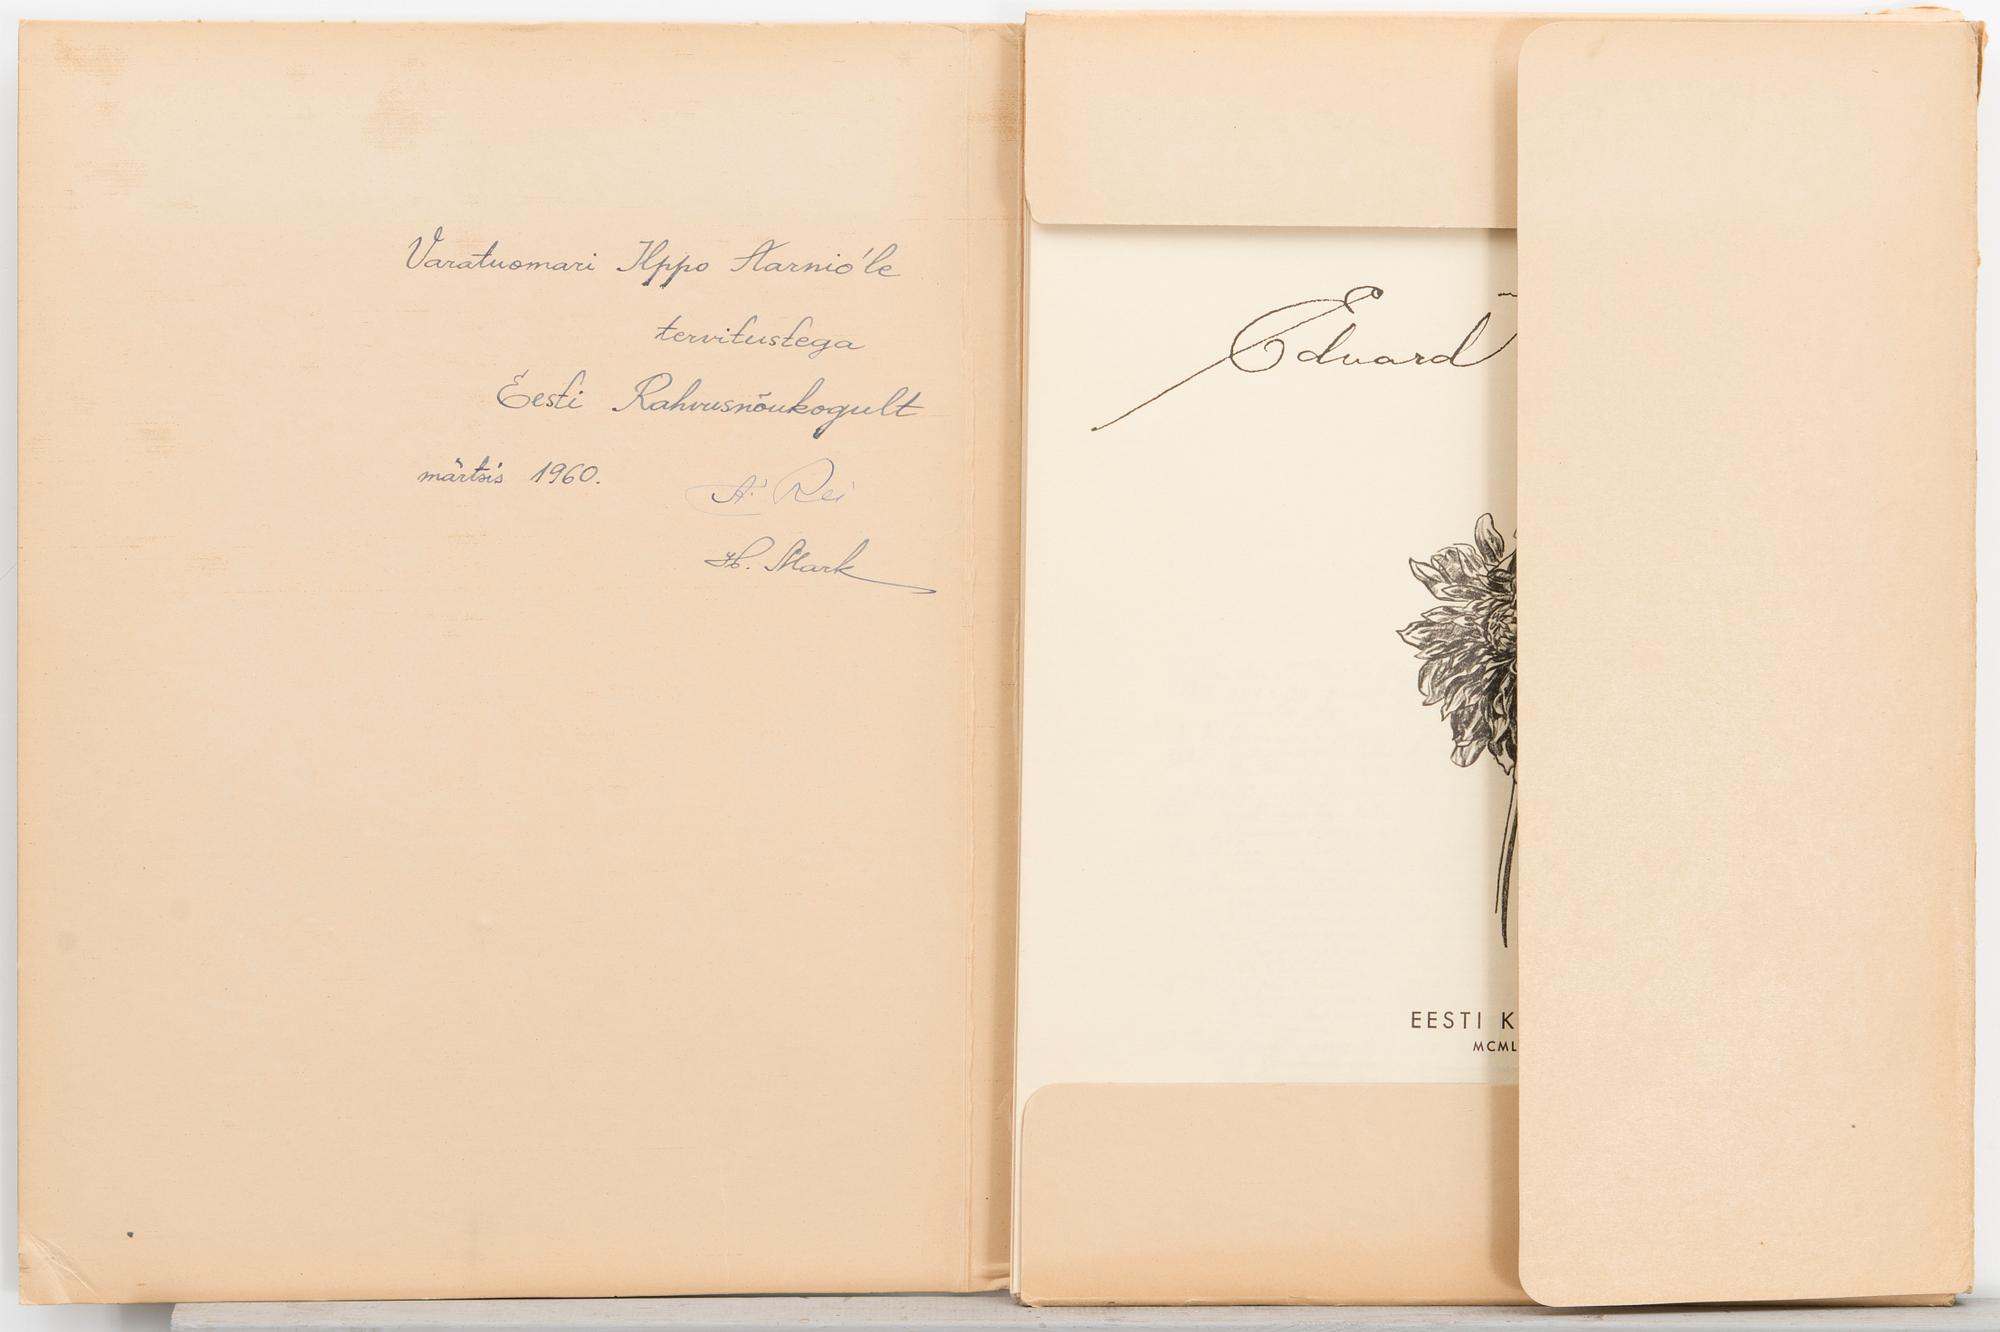 Varatuomari Ilppo Aarnio'le
tervitustega
Eesti Rahvusnõukogult
märtsis 1960.
A. Rei
H. Mark
Eduard
EESTI K
MCML